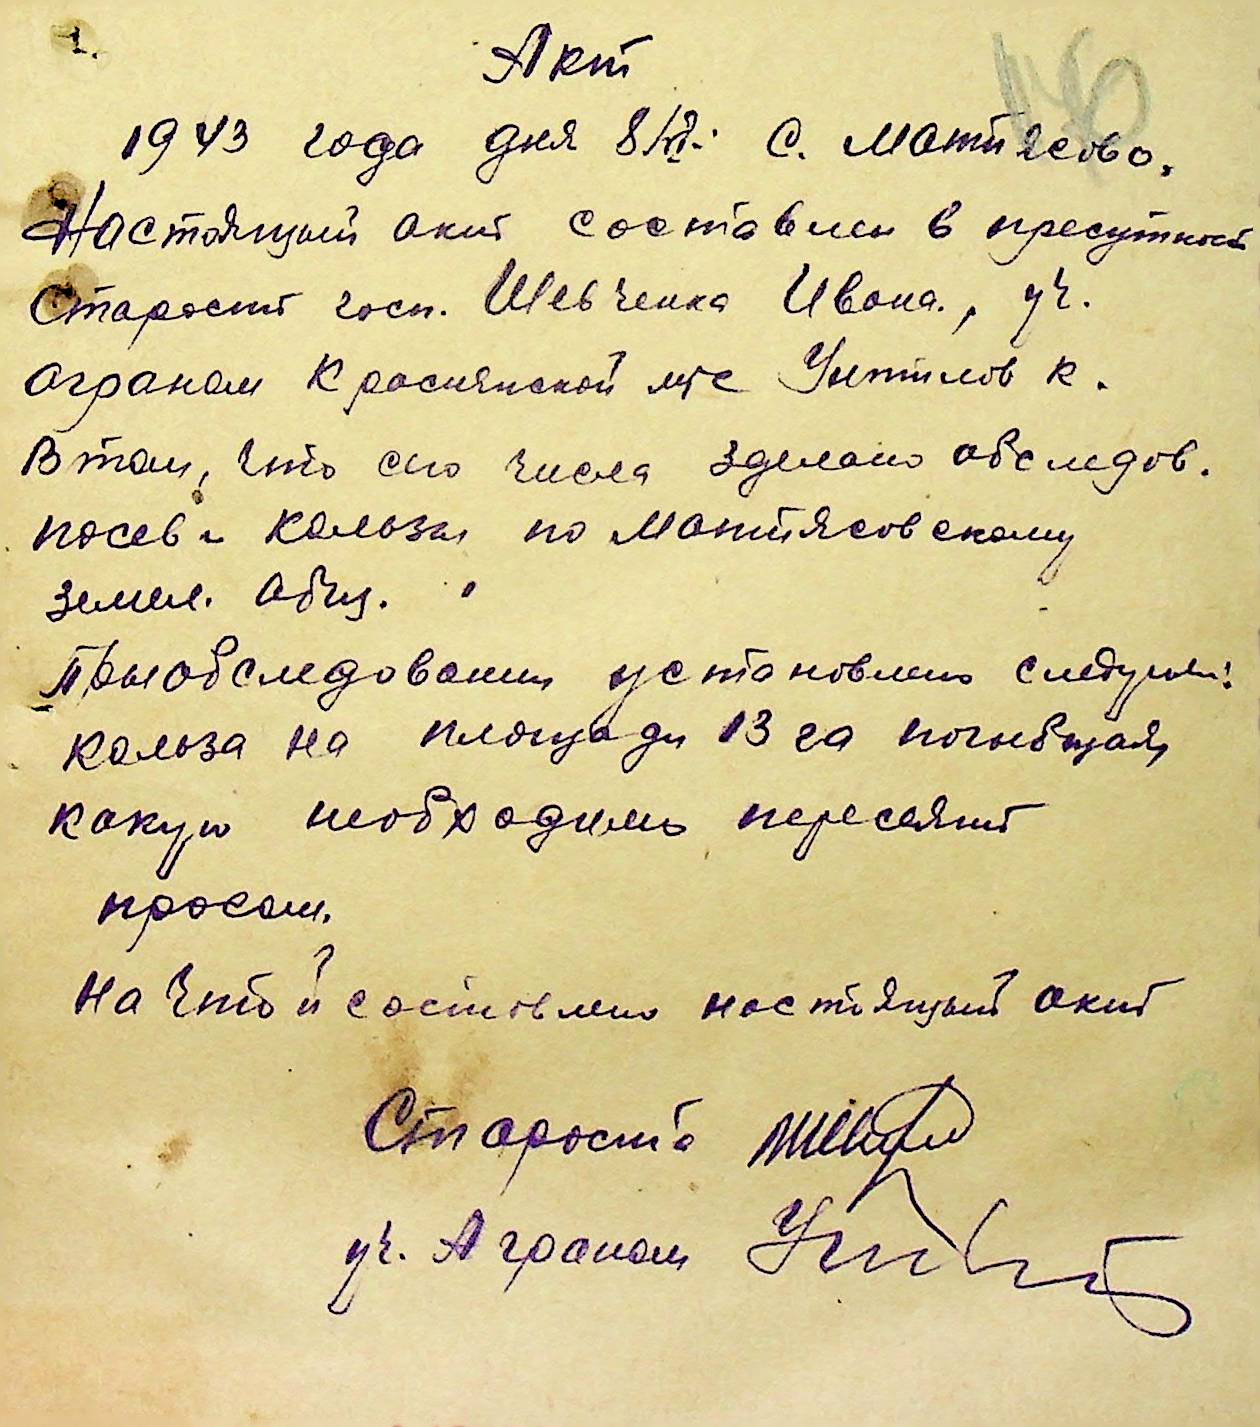 1.
Акт
1943 года дня 8/VI. С. Матиясово.
Настоящий акт составлен в присутност
Старости госп. Шевченка Ивана., уч.
аграном Краснянской мтс К.
В том, что сего числа зделано обследов.
посев кользы по Матиясовскому
земел. общ.
При обследовании установлено следующ:
Кольза на площади 13 га погибщая,
какую необходимо пересеять
просом.
На что й составлено настоящий акт
Староста
уч. Аграном